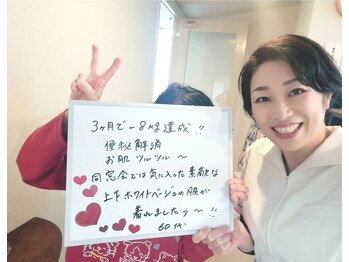 3ヶ月で－8kg達成!!
便秘解消
お肌ツルツル～
同窓会では気に入った素敵な
上下ホワイトベージュの服が
着れましたァ～!!
60代